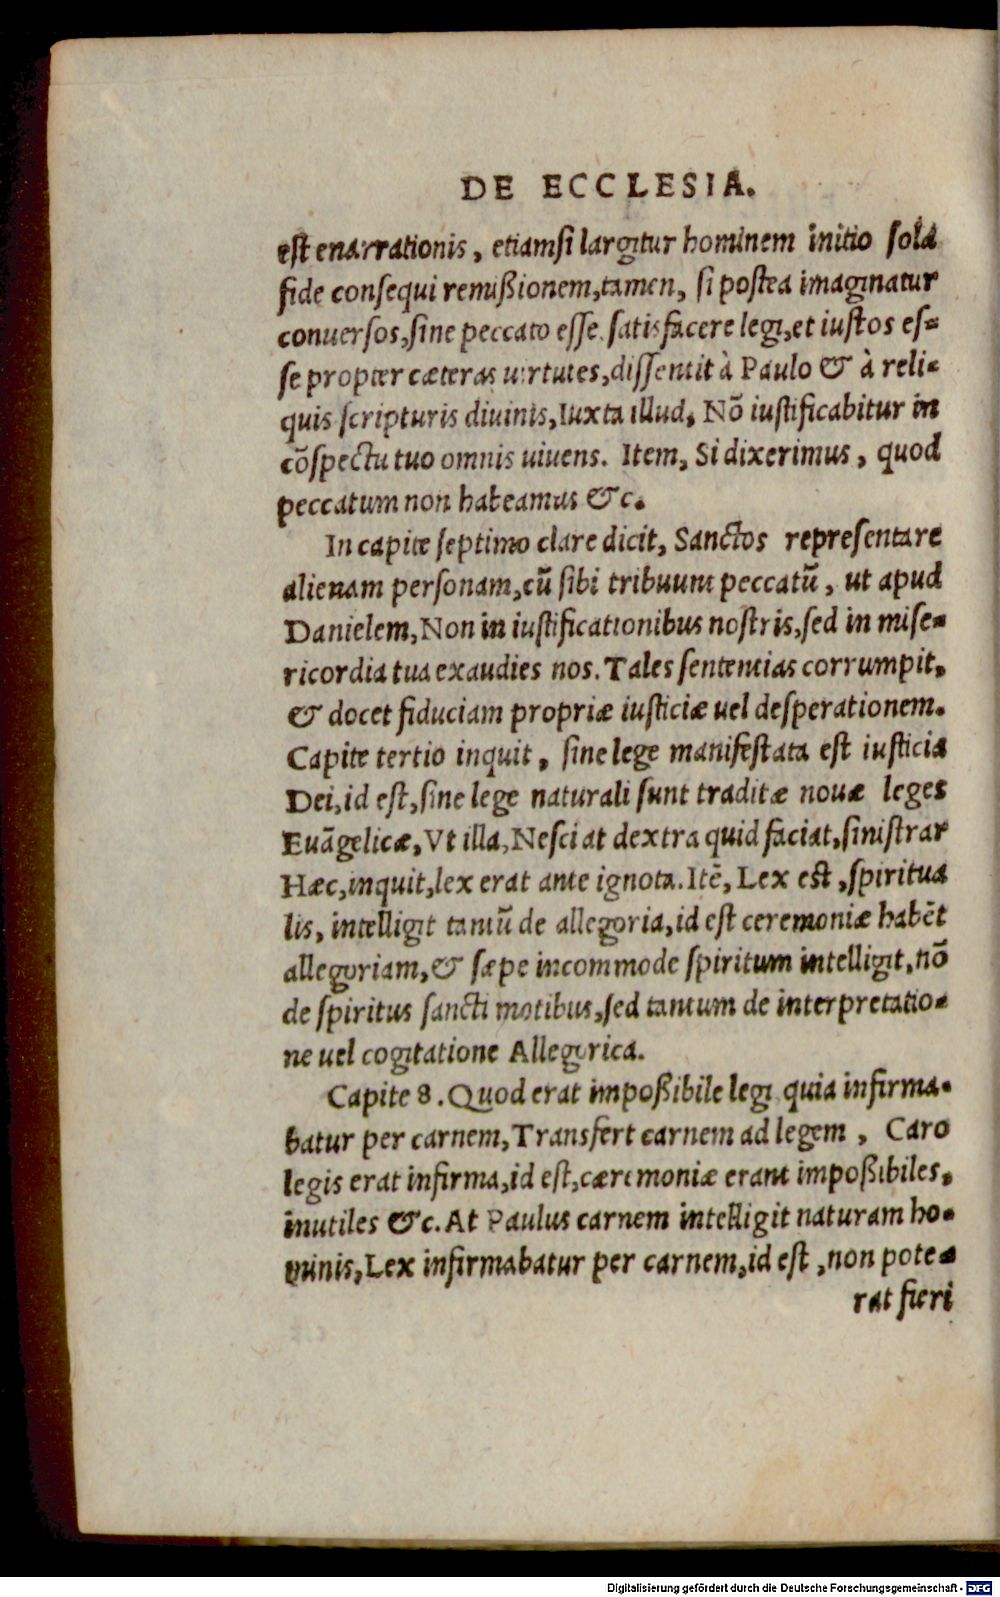 DE ECCLESIA.
est enarrationis, etiamsi largitur hominem initio sola
fide consequi remißionem, tamen, si postea imaginatur
conuersos, sine peccato esse. satisfacere legi, et iustos es=
se propter cæteras uirtutes, dissentit à Paulo & à reli=
quis scripturis diuinis, Iuxta illud, Nō iustificabitur in
cōspectu tuo omnis uiuens. Item, Si dixerimus, quod
peccatum non habeamus &c.
In capite septimo clare dicit, Sanctos repræsentare
alienam personam, cū sibi tribuunt peccatū, ut apud
Danielem, Non in iustificationibus nostris, sed in mise=
ricordia tua exaudies nos. Tales sententias corrumpit,
& docet fiduciam propriæ iusticiæ uel desperationem.
Capite tertio inquit, sine lege manifestata est iusticia
Dei, id est, sine lege naturali sunt traditæ nouæ leges
Euāgelicæ, Vt illa, Nesciat dextra quid faciat, sinistrar
Hæc, inquit, lex erat ante ignota. Itē, Lex est, spiritua
lis, intelligit tantū de allegoria, id est ceremoniæ habēt
allegoriam, & sæpe incommode spiritum intelligit, nō
de spiritus sancti motibus, sed tantum de interpretatio=
ne uel cogitatione Allegorica.
Capite 8. Quod erat impoßibile legi quia infirma=
batur per carnem, Transfert carnem ad legem, Caro
legis erat infirma, id est, cæremoniæ erant impoßibiles,
inutiles &c. At Paulus carnem intelligit naturam ho=
minis, Lex infirmabatur per carnem, id est, non pote=
rat fieri
Digitalisierung gefördert durch die Deutsche Forschungsgemeinschaft - DFG